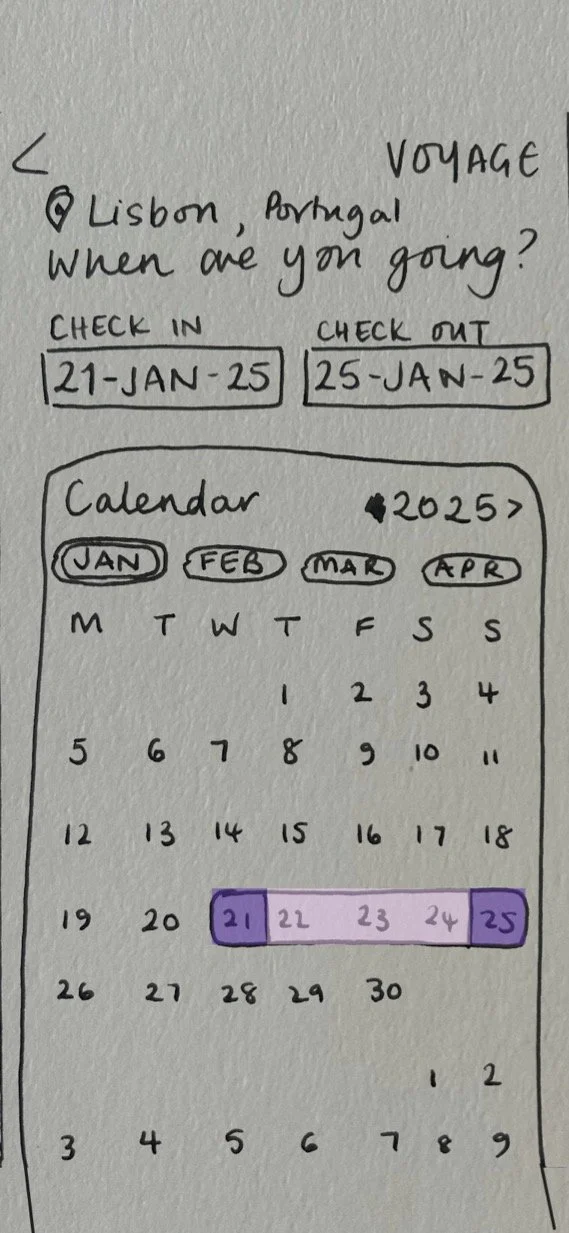 < VOYAGE
Lisbon, Portugal
When are you going?
CHECK IN CHECK OUT
21-JAN-25 25-JAN-25
Calendar 2025 >
JAN FEB MAR APR
M T W T F S S
1 2 3 4
5 6 7 8 9 10 11
12 13 14 15 16 17 18
19 20 21 22 23 24 25
26 27 28 29 30
1 2
3 4 5 6 7 8 9